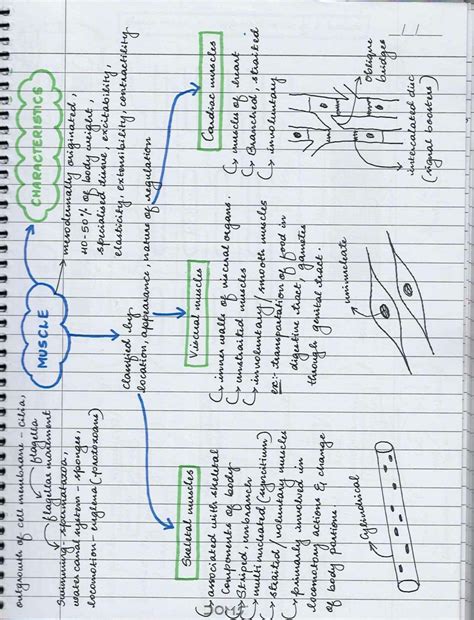 outgrowth of cell membrane - cilia,
flagella
flagellar movement
swimming - spermatozoa,
water canal system - sponges,
locomotion - euglena (protozoans)
MUSCLE
CHARACTERISTICS
mesodermally originated,
40-50% of body weight,
specialised tissue, excitability,
elasticity, extensibility, contractility
classified by
location, appearance, nature of regulation
Skeletal muscles
associated with skeletal
components of body
Striped, unbranch
multinucleated (syncitium)
straited / voluntary muscles
primarily involved in
locomotory actions & change
of body positions.
Cylindrical
Visceral muscles
inner walls of visceral organs.
unstraited muscles
involuntary / smooth muscles
ex:- transportation of food in
digestive tract, gametes
through genital tract.
uninucleate
Cardiac muscles
muscles of heart
Branched, straited
involuntary
oblique
bridges
intercalated disc
(signal boosters)